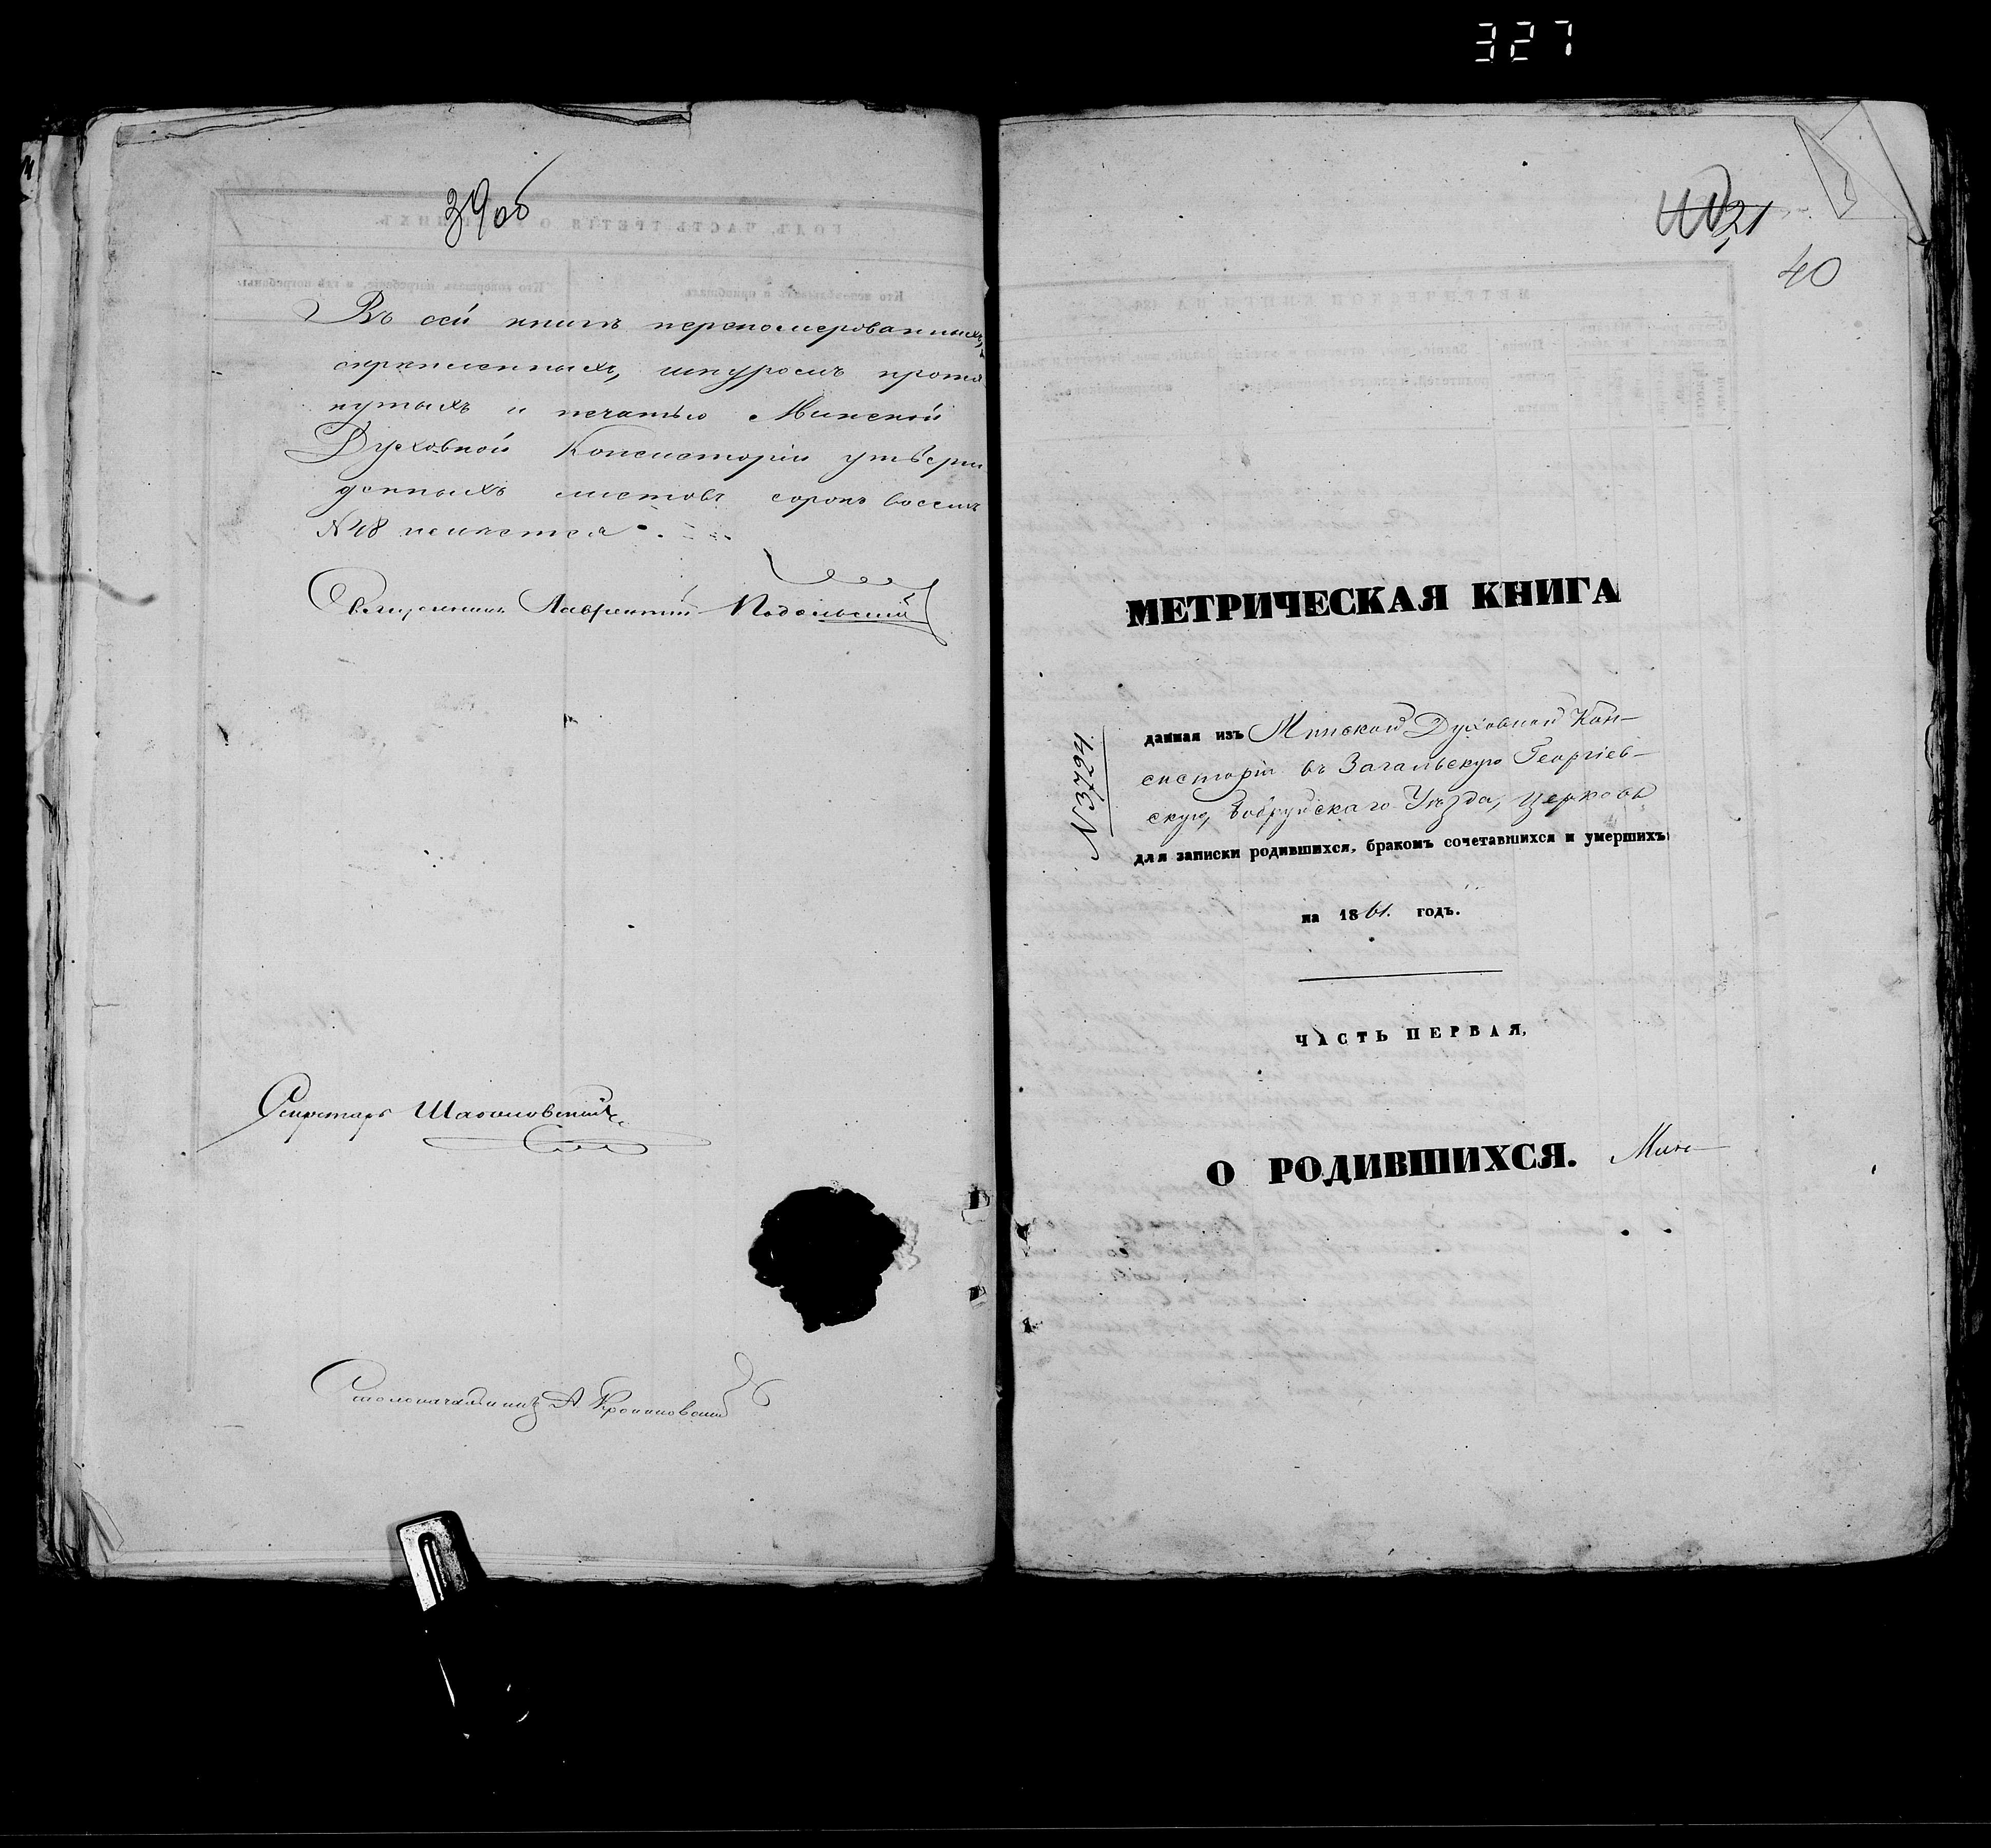 327
39об
Въ сей книгѣ перепомерованныхъ,
скрѣпленныхъ, шнуромъ протя
нутыхъ и печатью Минской
Духовной Консисторіи утверж
денныхъ листовъ сорокъ восемь
N 48 имѣется.
Священникъ Лаврентій Подольскій
Секретарь
Столоначальникъ А
21
40
МЕТРИЧЕСКАЯ КНИГА
N 3724
данная изъ Минской Духовной Кон-
систоріи въ Загальскую Георгіев-
скую, Бобруйскаго Уѣзда, церковь
для записки родившихся, бракомъ сочетавшихся и умершихъ
на 1861. годъ.
ЧАСТЬ ПЕРВАЯ,
О РОДИВШИХСЯ. Минс-